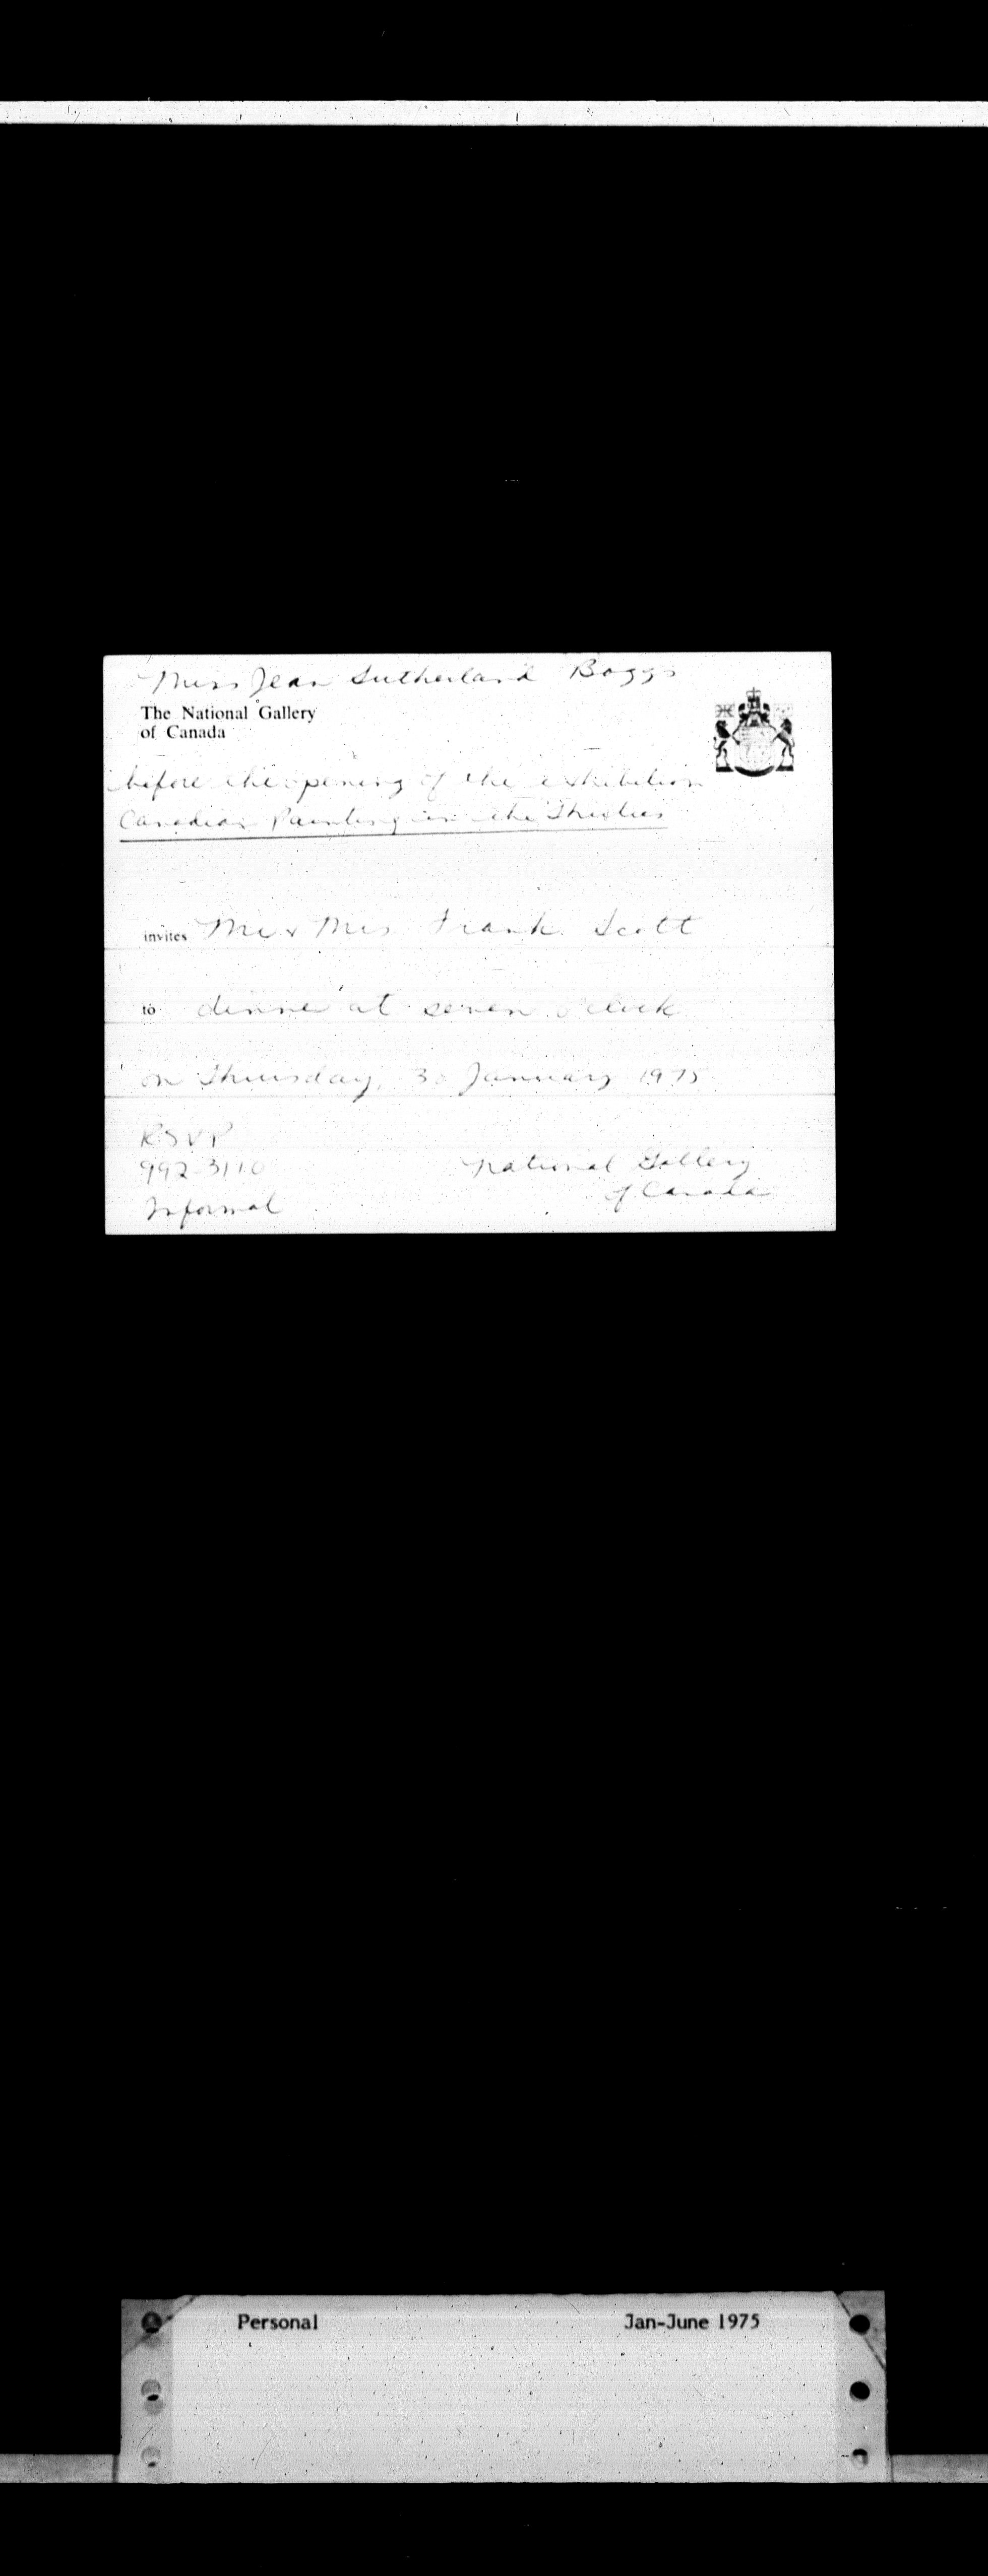 Miss Jean Sutherland Boggs
The National Gallery
of Canada
before the opening of the exhibition
Canadian Painting in the Thirties
invites Mr & Mrs Frank Scott
to dinner at seven o'clock
on Thursday, 30 January 1975
RSVP
992-3110
Informal
National Gallery
of Canada
Personal Jan-June 1975